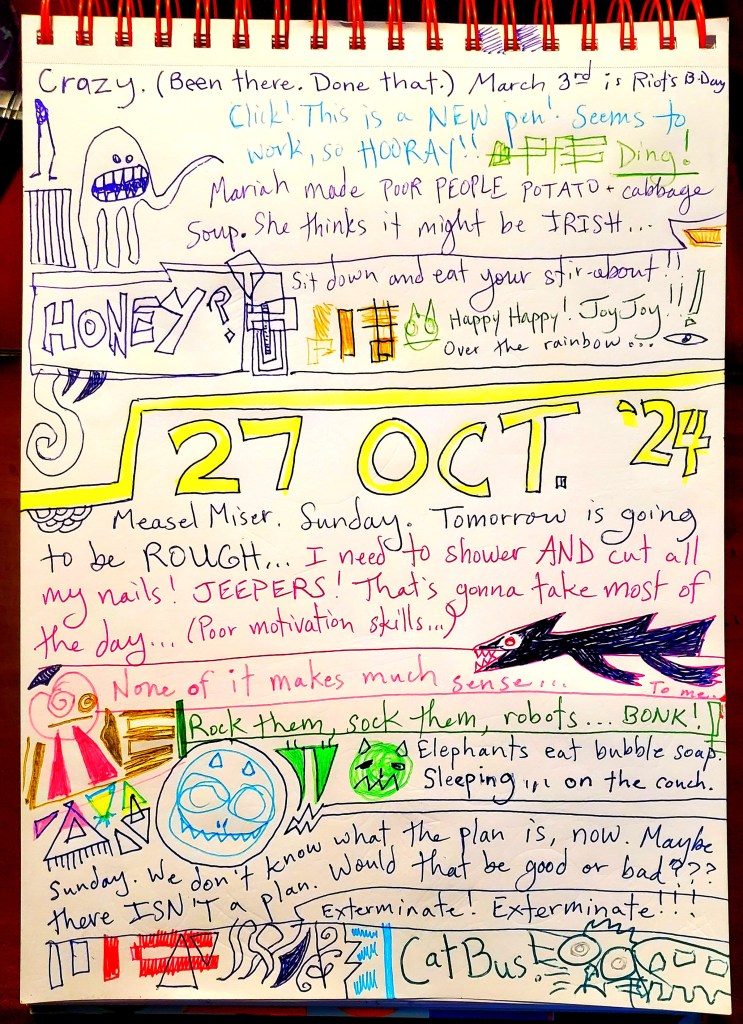 Crazy. (Been there. Done that.) March 3rd is Riot's B-Day
Click! This is a NEW pen! Seems to
work, so HOORAY!! Ding!
Mariah made POOR PEOPLE POTATO + cabbage
Soup. She thinks it might be IRISH...
Sit down and eat your stir-about!!
HONEY?
Happy Happy! Joy Joy!!!
Over the rainbow...
27 OCT. '24
Measel Miser. Sunday. Tomorrow is going
to be ROUGH... I need to shower AND cut all
my nails! JEEPERS! That's gonna take most of
the day... (Poor motivation skills...)
None of it makes much sense...
To me...
Rock them, sock them, robots... BONK!
Elephants eat bubble soap.
Sleeping... on the couch.
Sunday. We don't know what the plan is, now. Maybe
there ISN'T a plan. Would that be good or bad???
Exterminate! Exterminate!!!
CatBus!